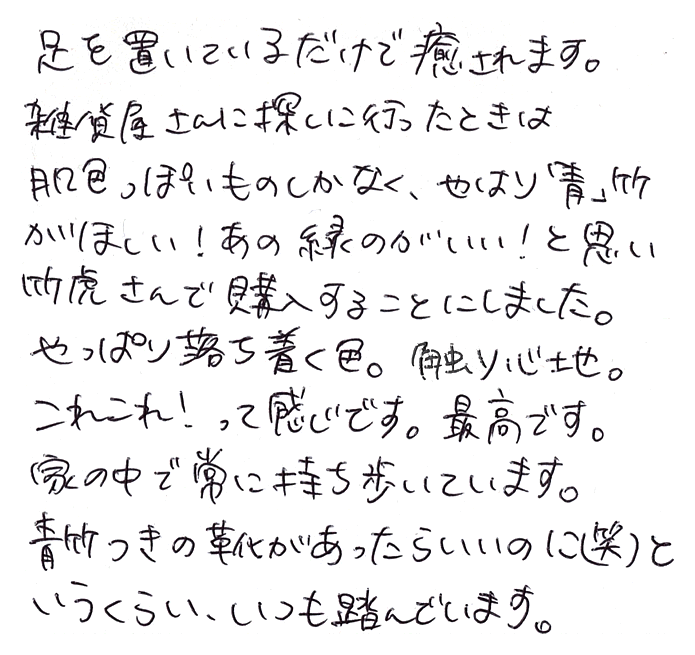 足を置いているだけで癒されます。
雑貨屋さんに探しに行ったときは
肌色っぽいものしかなく、やはり「青」竹
がほしい！あの緑のがいい！と思い
竹虎さんで購入することにしました。
やっぱり落ち着く色。触り心地。
これこれ！って感じです。最高です。
家の中で常に持ち歩いています。
青竹つきの靴があったらいいのに(笑)と
いうくらい、いつも踏んでいます。